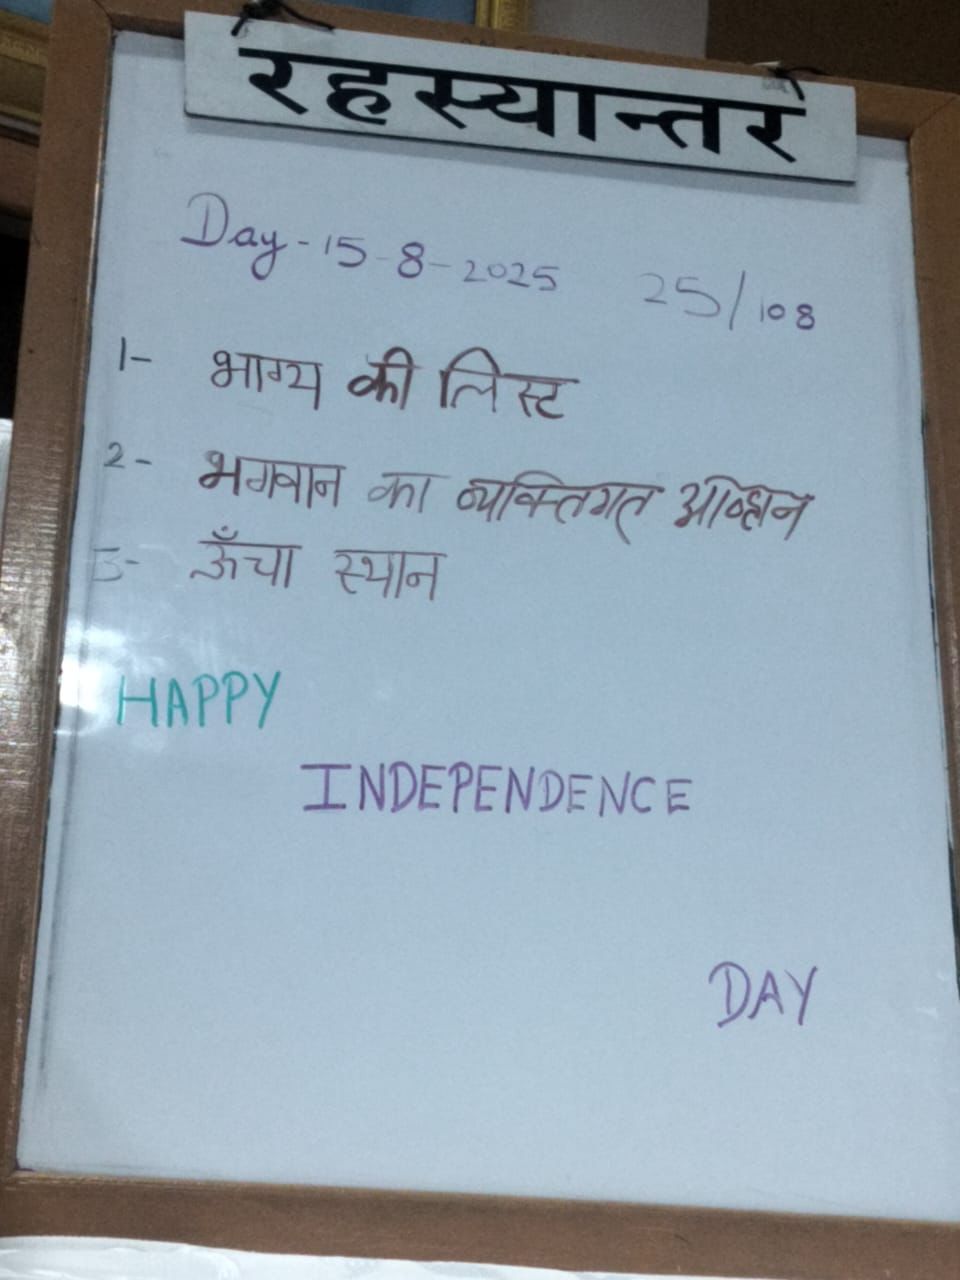 रहस्यान्तर
Day - 15-8-2025 25/108
1- भाग्य की लिस्ट
2- भगवान का व्यक्तिगत आव्हान
3- ऊँचा स्थान
HAPPY
INDEPENDENCE
DAY